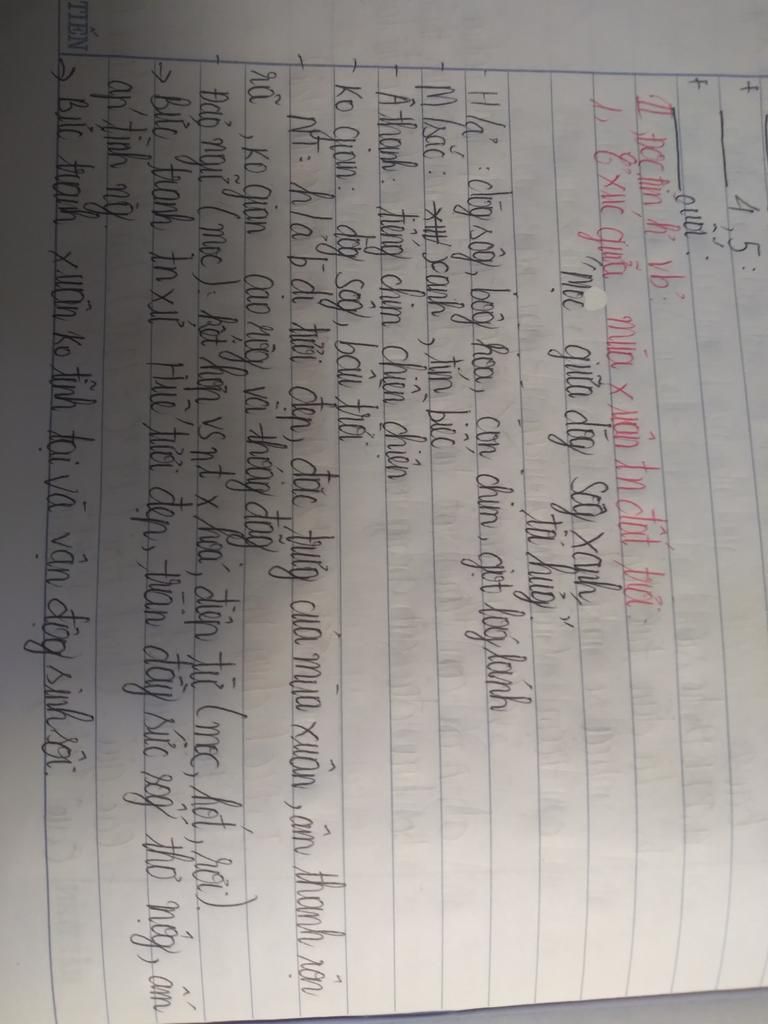 + 4, 5:
+ cuối:
II, Đọc tìm h' vb:
1, C xúc giữa mùa xuân tn đất trời:
"mọc giữa dòg sôg xanh
tôi hứg"
- H/ả: dòg sôg, bôg hoa, con chim, giọt log lanh
- M/sắc: xanh, tím biếc
- Â thanh: tiếng chim chiền chiện
- Ko gian: dòg sôg, bầu trời
- NT: h/ả b dị tươi đẹp, đặc trưg của mùa xuân, âm thanh rộn
rã, ko gian cao rộg và thoág đãg
- Đảo ngữ (mọc): kết hợp vs nt x hoá, điệp từ (mọc, hót, rơi)
→ Bức tranh tn xứ Huế tươi đẹp, tràn đầy sức sốg thơ mộg, ấm
áp tình ng
→ Bức tranh xuân ko tĩnh tại và vận độg sinh sôi.
TIẾN